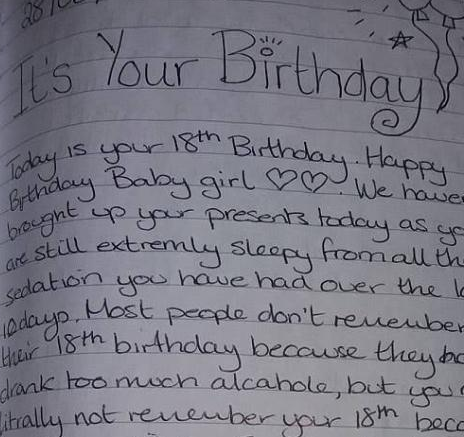 28
It's Your Birthday
Today is your 18th Birthday. Happy
Birthday Baby girl ♡♡. We haven
brought up your presents today as yo
are still extremly sleepy from all th
sedation you have had over the l
10days. Most people don't remember
their 18th birthday because they ha
drank too much alcahole, but you
litrally not remember your 18th beca